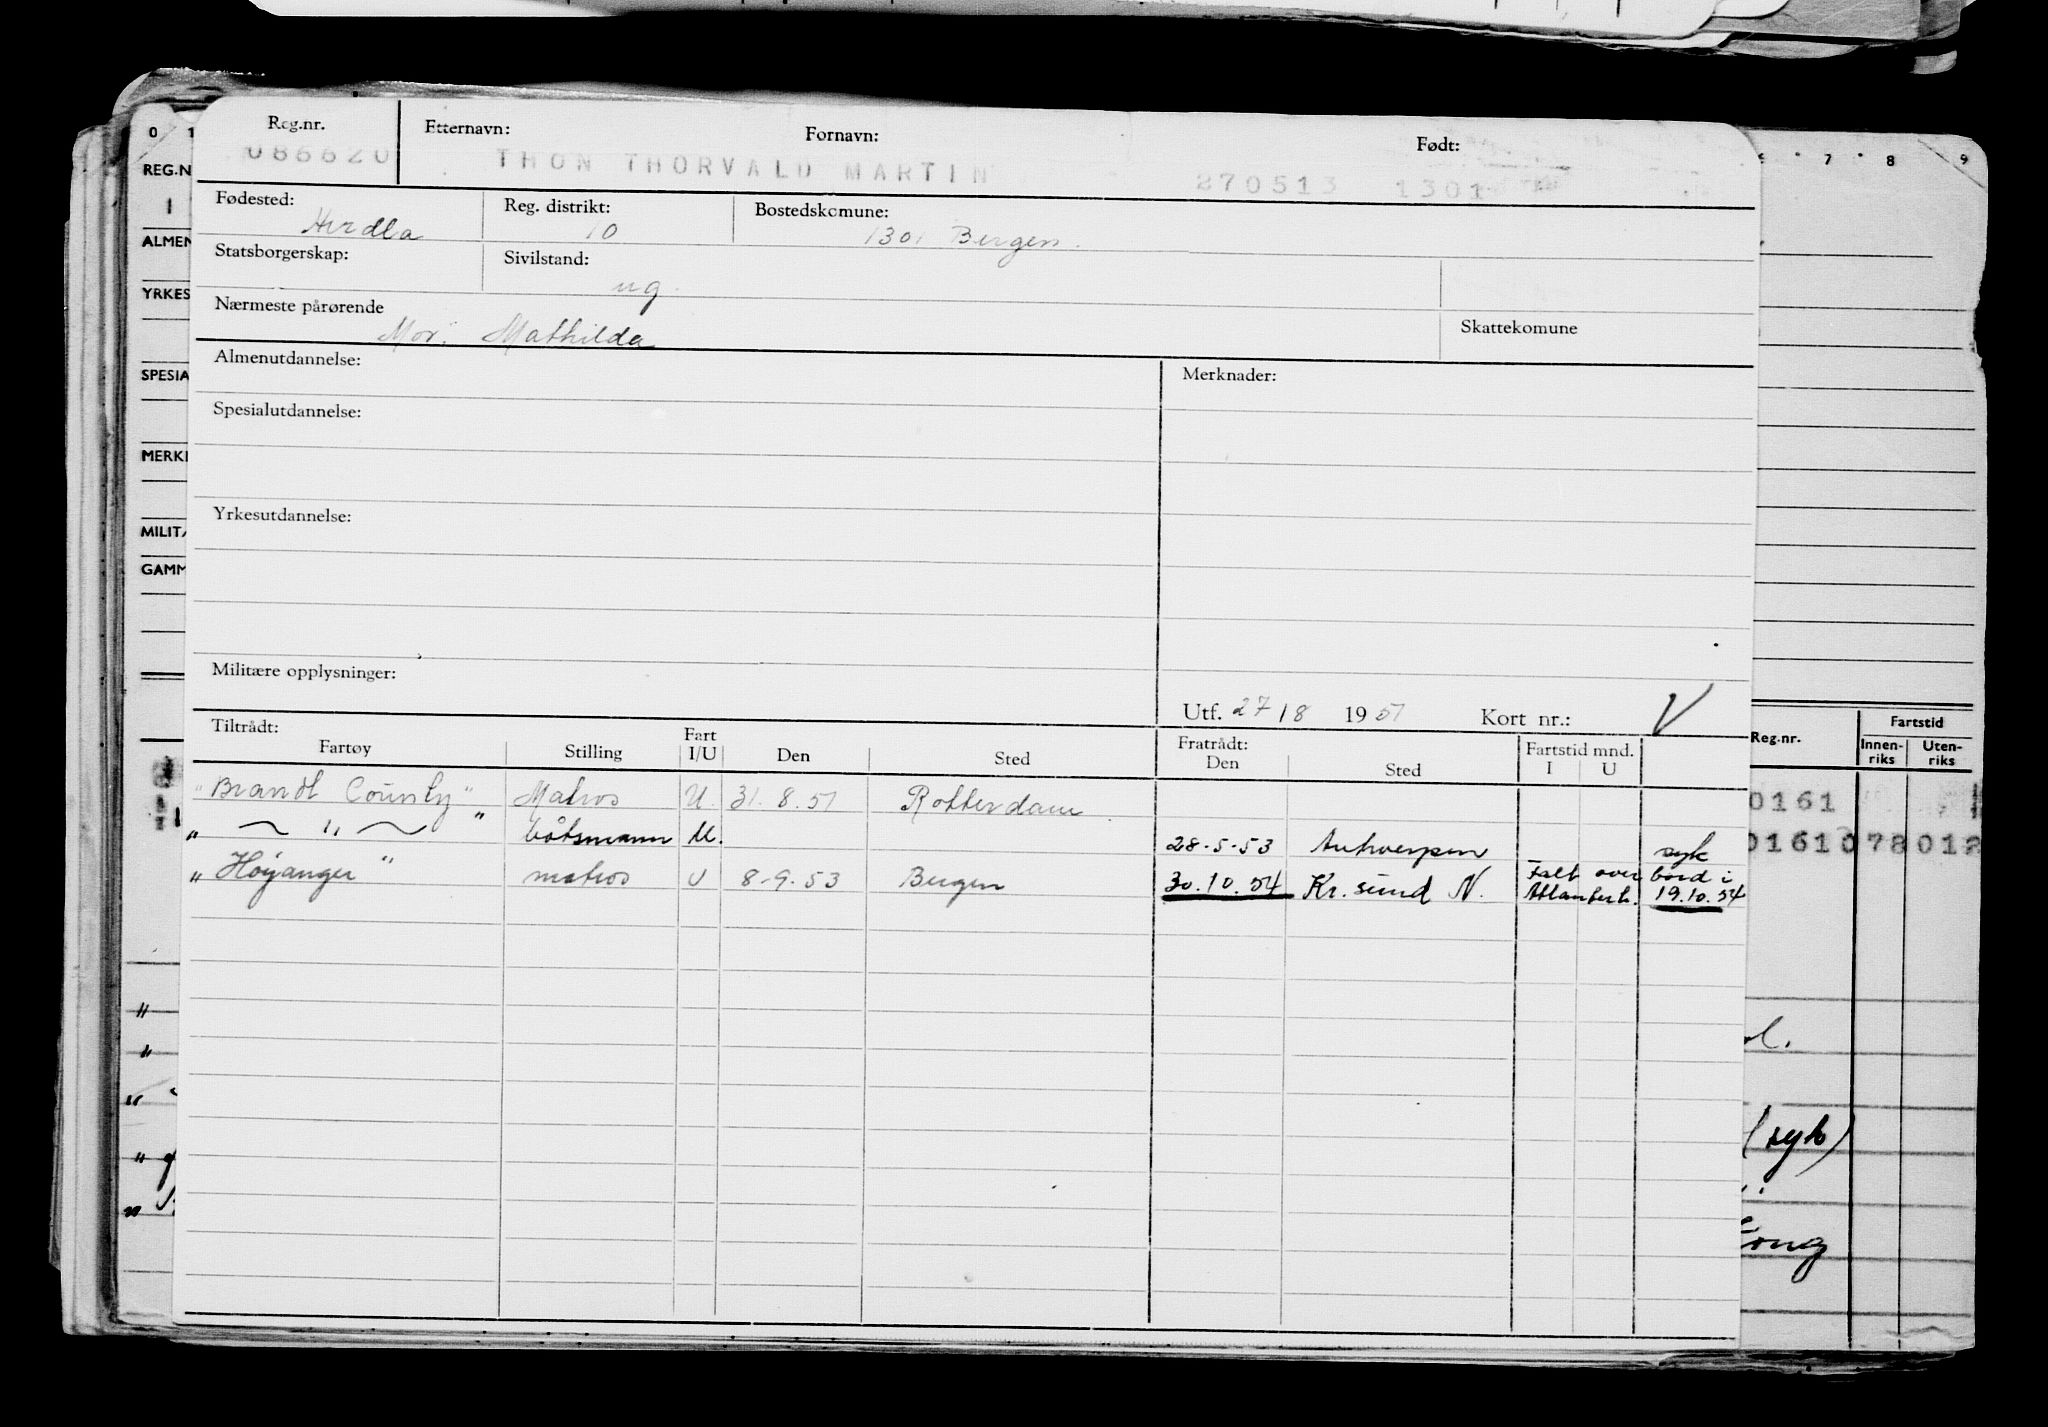 Reg.nr. Etternavn: Fornavn: Født:
086620 THON THORVALD MARTIN 270513 1301
Fødested: Reg. distrikt: Bostedskomune:
Herdla 10 1301 Bergen.
Statsborgerskap: Sivilstand:
ug.
Nærmeste pårørende Skattekomune
Mor: Mathilda
Almenutdannelse: Merknader:
Spesialutdannelse:
Yrkesutdannelse:
Militære opplysninger:
Utf. 27/8 1951 Kort nr.: V
Tiltrådt: Fratrådt: Fartstid mnd.
Fartøy Stilling Fart I/U Den Sted Den Sted I U
"Brandt County" Matros U. 31.8.51 Rotterdam
" — " — " båtsmann U. 28-5-53 Antwerpen syk
"Høyanger" matros U 8-9.53 Bergen 30.10.54 Kr.sund N. Falt over bord i
Atlanterh. 19.10.54
0 1 7 8 9
REG.N
1
ALMEN
YRKES
SPESIA
MERKI
MILITÆ
GAMM
Reg.nr. Fartstid
Innenriks Utenriks
0161
0161078012
(syk)
Kong